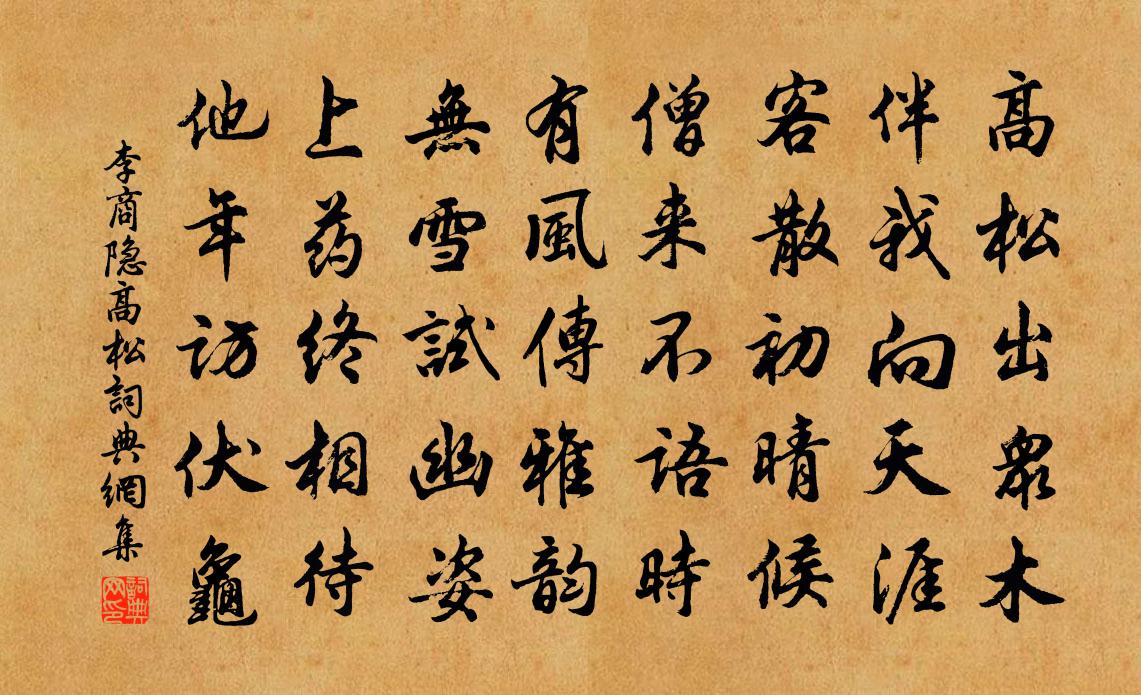 高松出眾木
伴我向天涯
客散初晴候
僧来不語時
有風傳雅韵
無雪試幽姿
上药终相待
他年访伏龜
李商隐高松詞典網集
詞典网印